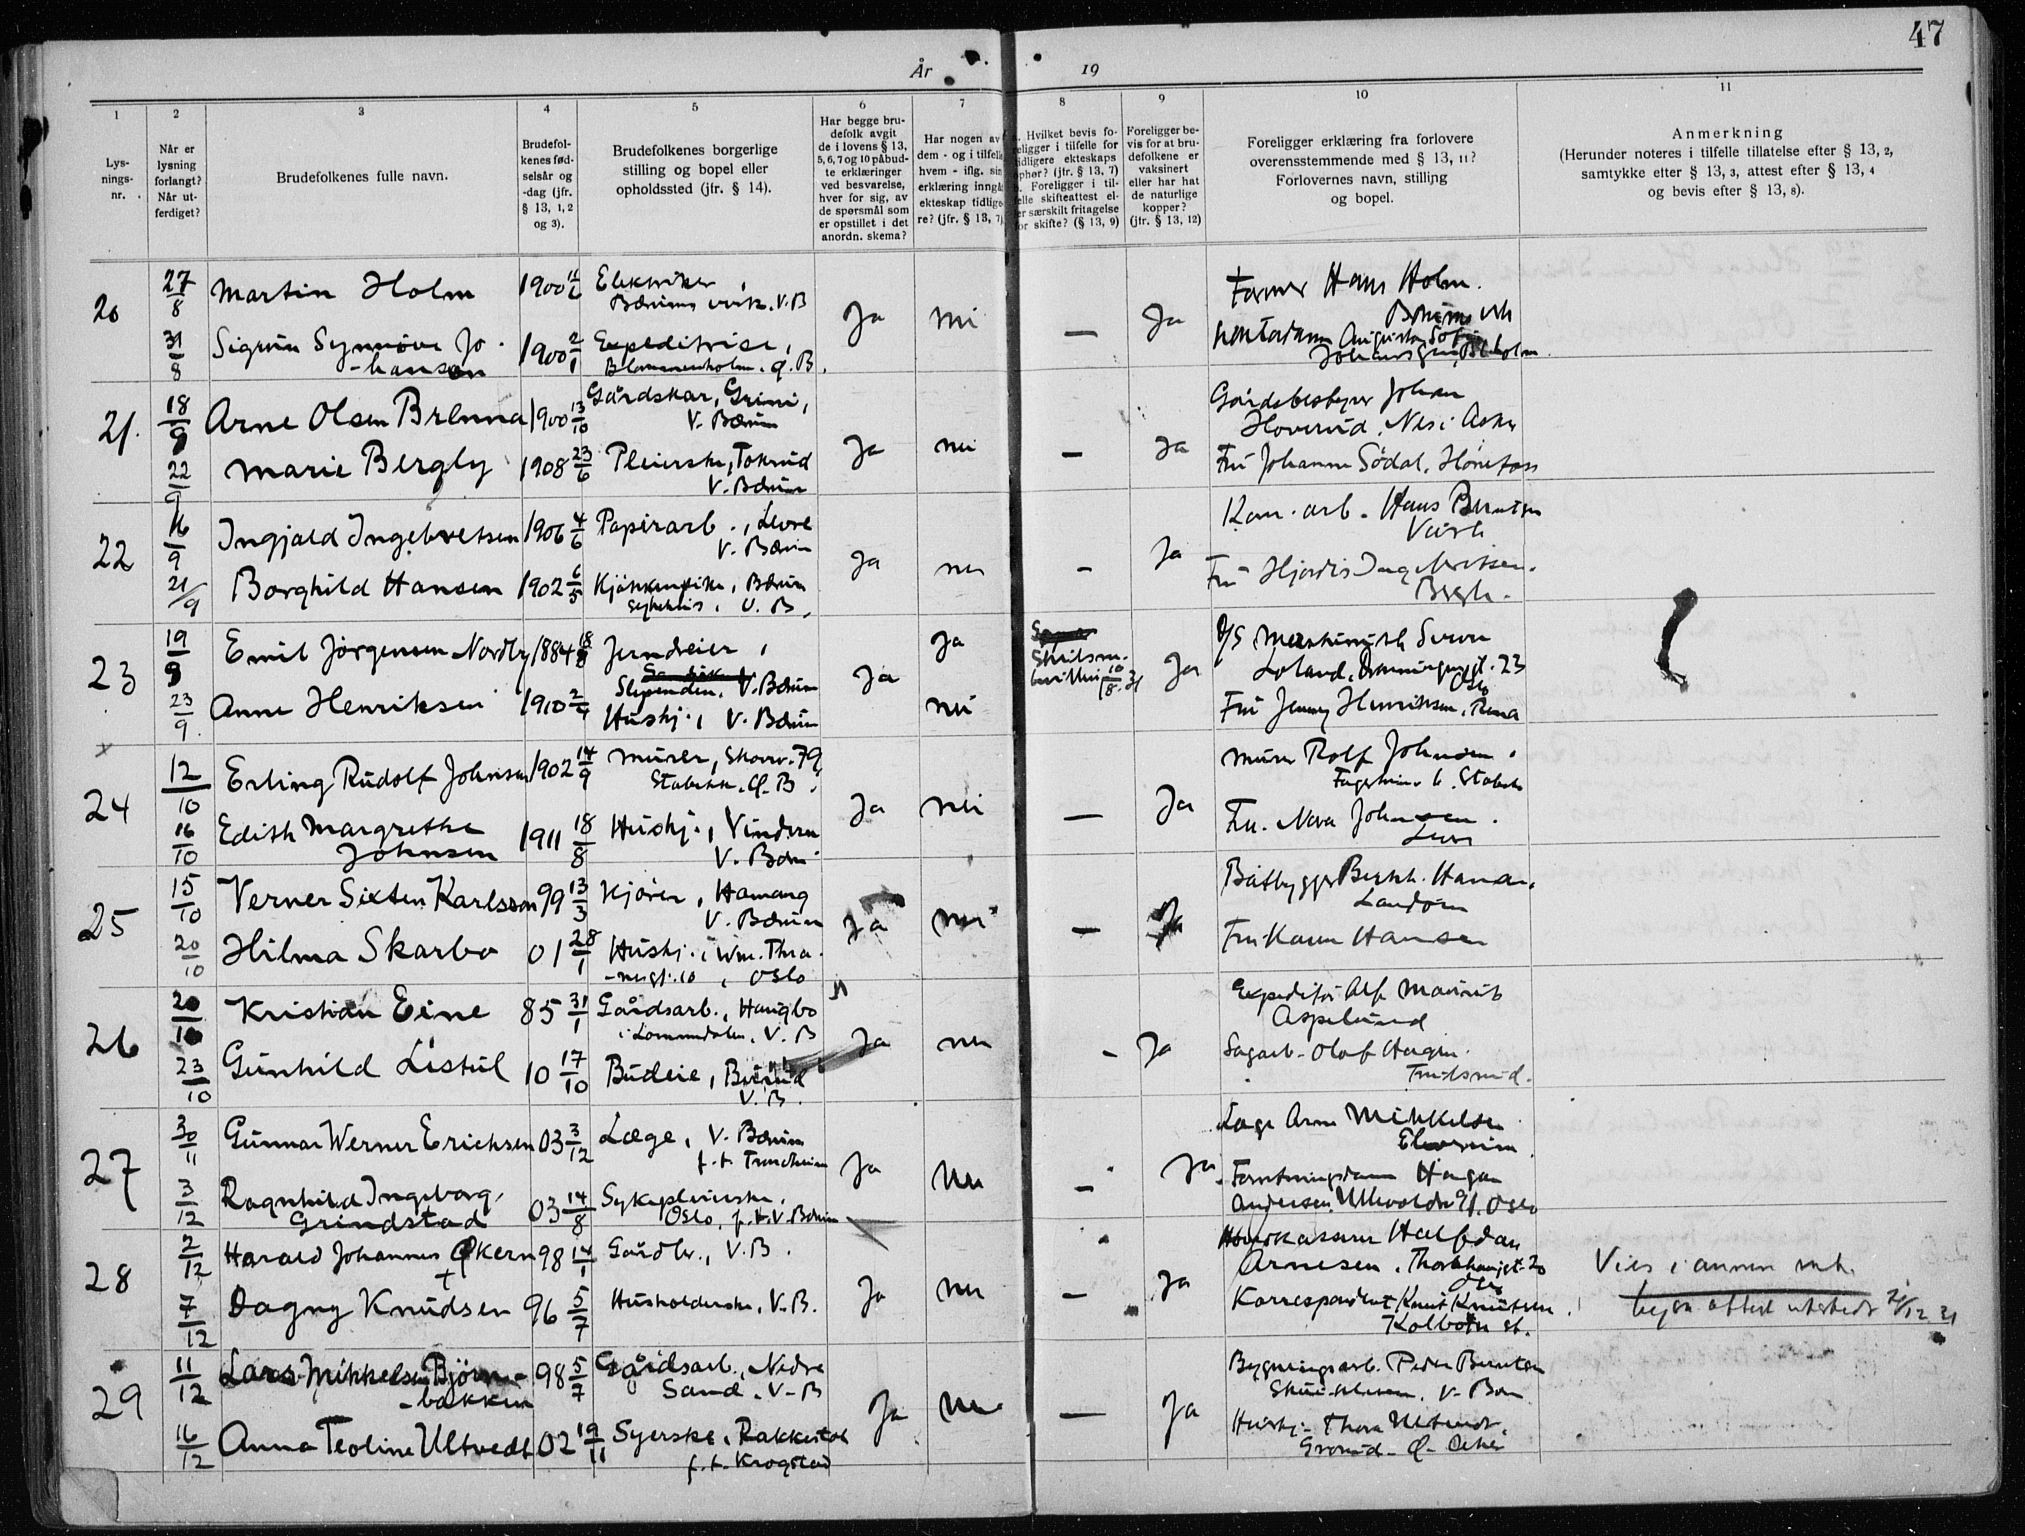 47
År
19
1 2 3 4 5 6 7 8 9 10 11
Lys-
nings-
nr.
Når er
lysning
forlangt?
Når ut-
ferdiget?
Brudefolkenes fulle navn.
Brudefol-
kenes fød-
selsår og
-dag (jfr.
§ 13, 1, 2
og 3).
Brudefolkenes borgerlige
stilling og bopel eller
opholdssted (jfr. § 14).
Har begge bru-
defolk avgit
de i lovens § 13,
5, 6, 7 og 10 påbud-
te erklæringer
ved besvarelse,
hver for sig, av
de spørsmål som
er opstillet i det
anordn. skema?
Har nogen av
dem - og i tilfelle
hvem - iflg. sin
erklæring inngå
ekteskap tidlige
re? (jfr. § 13, 7)
Hvilket bevis fo-
religger i tilfelle for
tidligere ekteskaps
ophør? (jfr. § 13, 7)
Foreligger i til-
felle skifteattest el-
ler særskilt fritagelse
for skifte? (§ 13, 9)
Foreligger be-
vis for at bru-
defolkene er
vaksinert
eller har hat
de naturlige
kopper?
(jfr. § 13, 12)
Foreligger erklæring fra forlovere
overensstemmende med § 13, 11?
Forlovernes navn, stilling
og bopel.
Anmerkning
(Herunder noteres i tilfelle tillatelse efter § 13, 2,
samtykke efter § 13, 3, attest efter § 13, 4
og bevis efter § 13, 8).
20 27/8 Martin Holm 1900 11/6 Elektriker, Bærums verk. V.B Ja nei — Ja Former Hans Holm.
31/8 Sigrun Synnøve Jo-
-hansen 1900 2/1 Expeditrise,
Blommenholm. Ø.B.
21. 18/9 Arne Olsen Brenna 1900 13/10 Gårdskar, Grini,
V. Bærum Ja nei — Ja Gårdsbestyrer Johan
Hoverud, Nes i Asker
22/9 Marie Bergly 1908 23/6 Pleierske, Tokerud
V. Bærum Fru Johanne Sødal, Hønefoss
22 16/9 Ingjald Ingebretsen 1906 4/6 Papirarb., Levre
V. Bærum Ja nei - Ja Kom. arb. Hans Berntsen
21/9 Borghild Hansen 1902 6/5 Kjøkkenpike, Bærum
sykehus, V. B. Fru Hjørdis Ingebretsen.
23 19/9 Emil Jørgensen Nordby 1884 18/8 Jerndreier,
Slependen, V. Bærum Ja Ja Skilsm.
bevilling 10/8.31 Ja
Loland, Dronningensgt. 23
Oslo
23/9. Anne Henriksen 1910 2/9 Hushj., V. Bærum nei Fru Jenny Henriksen, Rena
24 12/10 Erling Rudolf Johnsen 1902 14/9 Murer, Skovv. 79,
Stabekk. Ø. B. Ja nei — Ja Murer Rolf Johnsen.
16/10 Edith Margrethe
Johnsen 1911 18/8 Hushj., Vinderen
V. Bærum Fru. Nora Johnsen.
25 15/10 Verner Sixten Karlsson 99 13/3 Kjører, Hamang
V. Bærum Ja nei — Ja Båtbygger Hansen.
Landøen
20/10 Hilma Skarbo 01 28/1 Hushj., Wm. Thra-
-nesgt. 10, Oslo Fru Karen Hansen
26 20/10 Kristian Eine 85 31/1 Gårdsarb., Haugbo
i Lommedalen. V. B Ja nei - Ja Expeditør Alf Maurits
Aspelund
23/10 Gunhild Listul 10 17/10 Budeie,
V. B. Sagarb. Olaf Hagen.
27 30/11 Gunnar Werner Erichsen 03 3/12 Læge, V. Bærum
f.t. Trondheim Ja nei — Ja. Læge Arne Mikkelsen
Elverum
3/12 Ragnhild Ingeborg
Grindstad 03 14/8 Sykepleierske,
Oslo, f.t. V. Bærum Forretningsdame Haugen
Andersen, Ullevoldsv. 91. Oslo
28 2/12 Harald Johannes Økern 98 14/1 Gårdbr., V. B. Ja nei — Ja Halfdan
Arnesen, Thorshaugt. 20
Oslo
7/12 Dagny Knudsen 96 5/7 Husholderske, V. B. Korrespondent Knut Knutsen
Kolbotn st.
Vies i annen mh.
21/12 31
29 11/12 Lars Mikkelsen Bjørn-
-bakken 98 5/7 Gårdsarb., Nedre
Sand. V. B Ja nei — Ja Bygningsarb. Peder Berntsen
16/12 Anna Teoline Ultvedt 02 19/11 Syerske, Rakkestad
f.t. Krogstad Hushj. Thora Ultvedt.